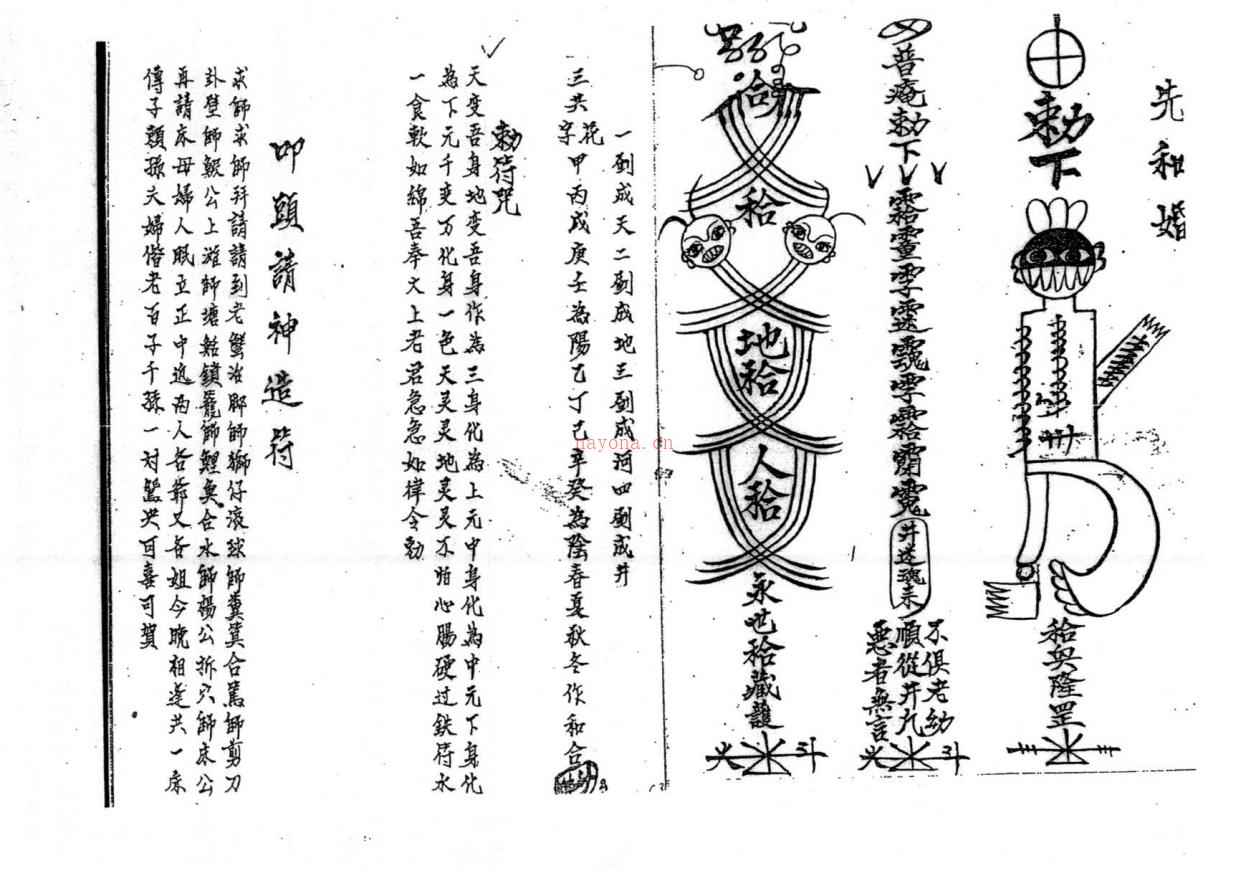 先和婚
勅下
和合興隆罡
普庵勅下
井迷魂未
不俱老幼
順從井九
惡者無言
斗
合
和合
地和合
人和合
永世和合藏護
斗
一劃成天二劃成地三劃成河四劃成井
三共花字甲丙戊庚壬為陽乙丁己辛癸為陰春夏秋冬作和合
勅符咒
天变吾身地变吾身作為三身化為上元中身化為中元下身化
為下元千变万化身一色天灵灵地灵灵不怕心腸硬过鉄符水
一食軟如綿吾奉大上老君急急如律令勅
叩頭請神造符
求師求師拜請請到老蟹治師獅仔滾球師糞箕合篤師剪刀
卦壁師公上滩師塘鎖籠師鯉魚合水師楊公拆穴師床公
再請床母婦人眠立正中迷两人各爺又各姐今晚相逢共一床
傳子顛孫夫婦偕老百子千孫一对鴛央可喜可賀
nayona.cn